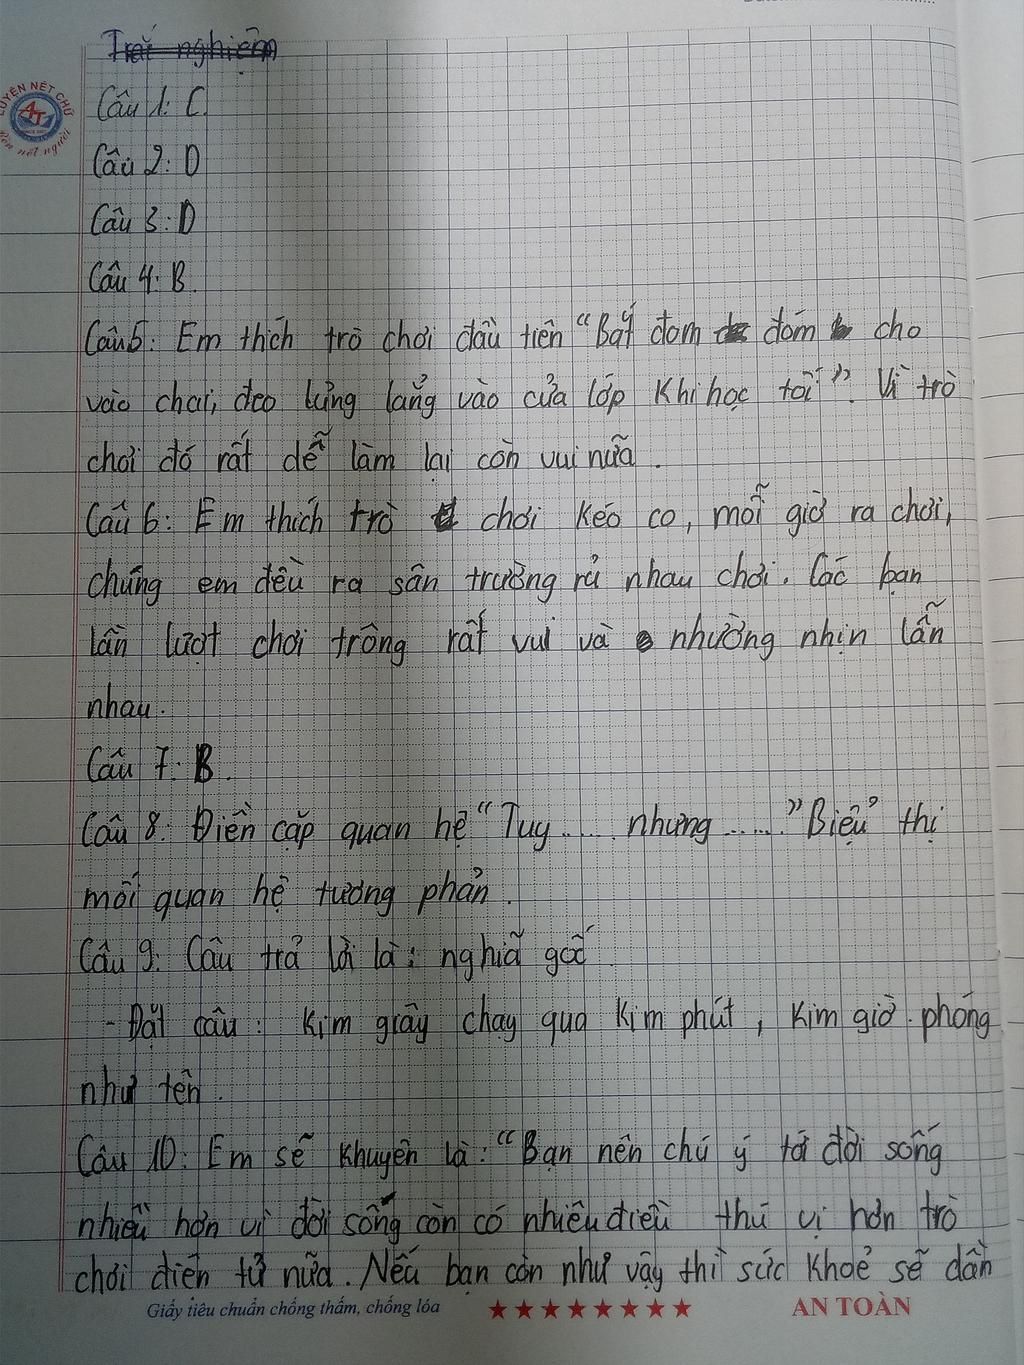 LUYỆN NÉT CHỮ
AT
Rèn nết người
Trắc nghiệm
Câu 1: C.
Câu 2: D
Câu 3: D
Câu 4: B.
Câu 5: Em thích trò chơi đầu tiên "Bắt đom đóm cho
vào chai, đeo lủng lẳng vào cửa lớp khi học tối". Vì trò
chơi đó rất dễ làm lại còn vui nữa.
Câu 6: Em thích trò chơi kéo co, mỗi giờ ra chơi,
chúng em đều ra sân trường rủ nhau chơi. Các bạn
lần lượt chơi trông rất vui và nhường nhịn lẫn
nhau.
Câu 7: B.
Câu 8: Điền cặp quan hệ "Tuy...... nhưng ......." Biểu thị
mối quan hệ tương phản.
Câu 9: Câu trả lời là: nghĩa gốc
- Đặt câu: Kim giây chạy qua kim phút, kim giờ phóng
như tên.
Câu 10: Em sẽ khuyên là: "Bạn nên chú ý tới đời sống
nhiều hơn vì đời sống còn có nhiều điều thú vị hơn trò
chơi điện tử nữa. Nếu bạn còn như vậy thì sức khoẻ sẽ dần
Giấy tiêu chuẩn chống thấm, chống lóa
AN TOÀN